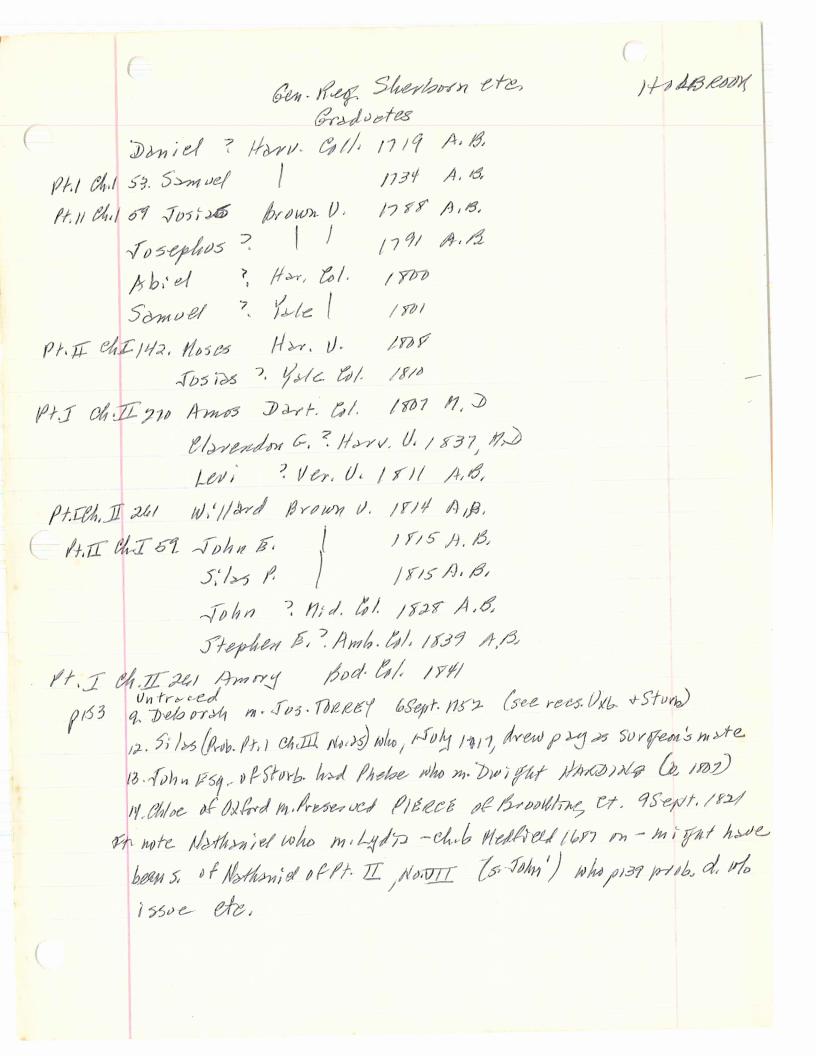 Gen. Reg. Sherborn etc. HOLBROOK
Graduates
Daniel ? Harv. Coll. 1719 A.B.
Pt.I Ch.I 53. Samuel | 1734 A.B.
Pt.II Ch.I 59 Josias Brown U. 1788 A.B.
Josephus ? | | 1791 A.B
Abiel ? Har. Col. 1800
Samuel ? Yale | 1801
Pt.II Ch I 142. Moses Har. U. 1808
Josias ? Yale Col. 1810
Pt.I Ch.II 270 Amos Dart. Col. 1807 M.D
Clarendon G. ? Harv. U. 1837, M.D
Levi ? Ver. U. 1811 A.B.
Pt.I Ch. II 261 Willard Brown U. 1814 A.B.
Pt.II Ch.I 59 John E. | 1815 A.B.
Silas P. | 1815 A.B.
John ? Mid. Col. 1828 A.B.
Stephen E. ? Amh. Col. 1839 A.B.
Pt. I Ch.II 261 Amory Bod. Col. 1841
Untraced
p153 9. Deborah m. Jos. TORREY 6 Sept. 1752 (see recs. Uxb. + Sturb)
12. Silas (Prob. Pt.I Ch.III No.25) who, 1 July 1717, drew pay as surgeon's mate
13. John Esq. of Sturb. had Phebe who m. Dwight HARDING (a 1807)
14. Chloe of Oxford m. Preserved PIERCE of Brookline, Ct. 9 Sept. 1821
note Nathaniel who m. Lydia - ch. b Medfield 1687 on - might have
been s. of Nathaniel of Pt. II, No. VII (s. John') who p139 prob. d. w/o
issue etc.